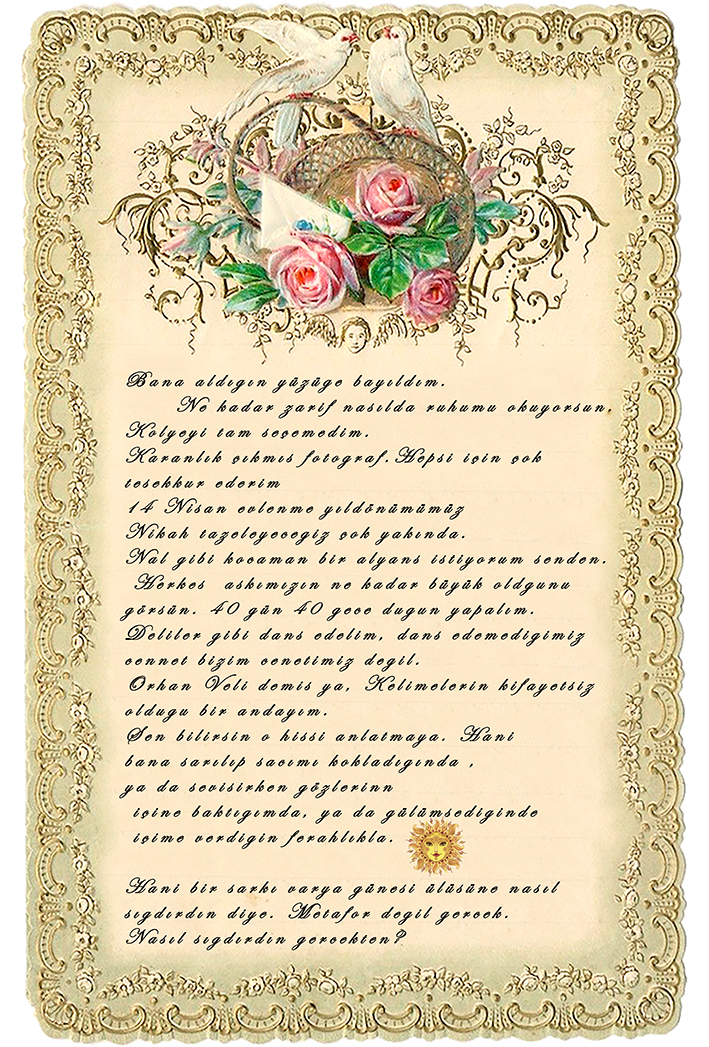 Bana aldıgın yüzüge bayıldım.
Ne kadar zarif nasılda ruhumu okuyorsun.
Kolyeyi tam seçemedim.
Karanlık çıkmıs fotograf.Hepsi için çok
tesekkur ederim
14 Nisan evlenme yıldönümümüz
Nikah tazeleyecegiz çok yakında.
Nal gibi kocaman bir alyans istiyorum senden.
Herkes askımızın ne kadar büyük oldgunu
görsün. 40 gün 40 gece dugun yapalım.
Deliler gibi dans edelim, dans edemedigimiz
cennet bizim cenetimiz degil.
Orhan Veli demis ya, Kelimelerin kifayetsiz
oldugu bir andayım.
Sen bilirsin o hissi anlatmaya. Hani
bana sarılıp sacımı kokladıgında ,
ya da sevisirken gözlerinn
içine baktıgımda, ya da gülümsediginde
içime verdigin ferahlıkla.
Hani bir sarkı varya günesi ülüsüne nasıl
sıgdırdın diye. Metafor degil gercek.
Nasıl sıgdırdın gercekten?